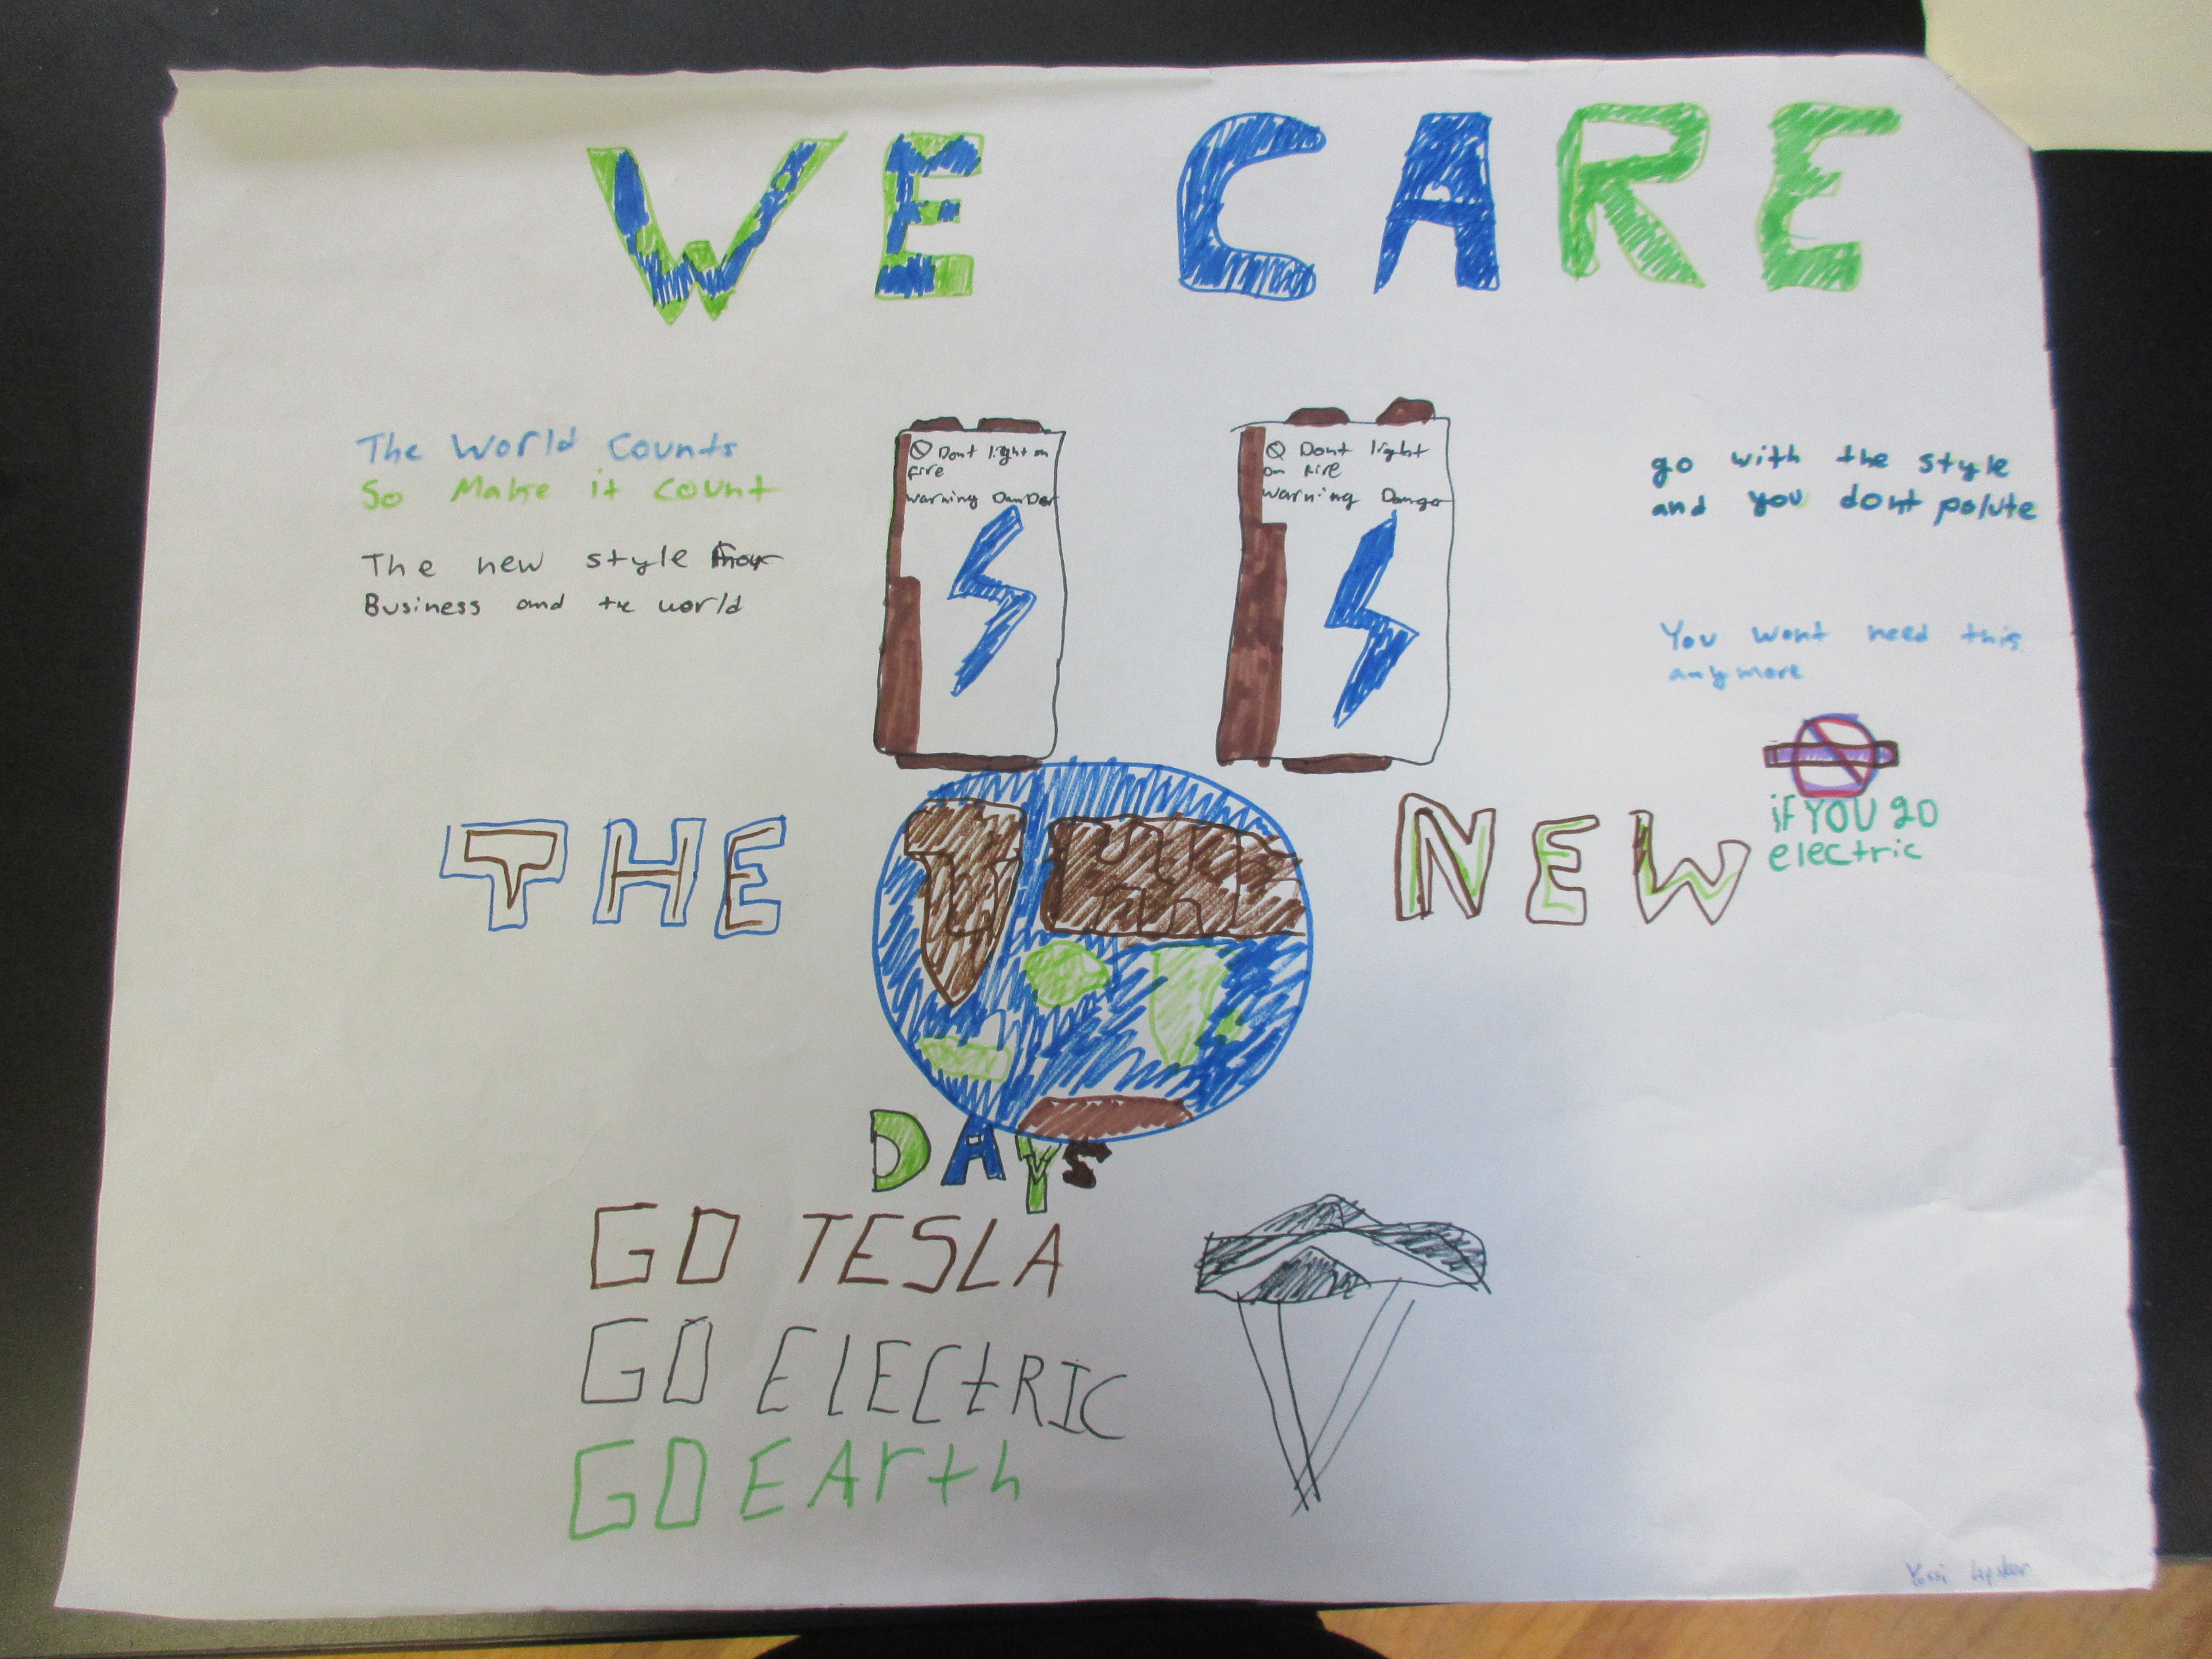 WE CARE
The World Counts
So Make it count
The new style
Business and the world
Dont light on
fire
warning DanDer
Dont light
on fire
warning Danger
go with the style
and you dont polute
You wont need this
anymore
if YOU go
electric
THE NEW
DAYS
GO TESLA
GO ElECtRIC
GO EArth
Yossi